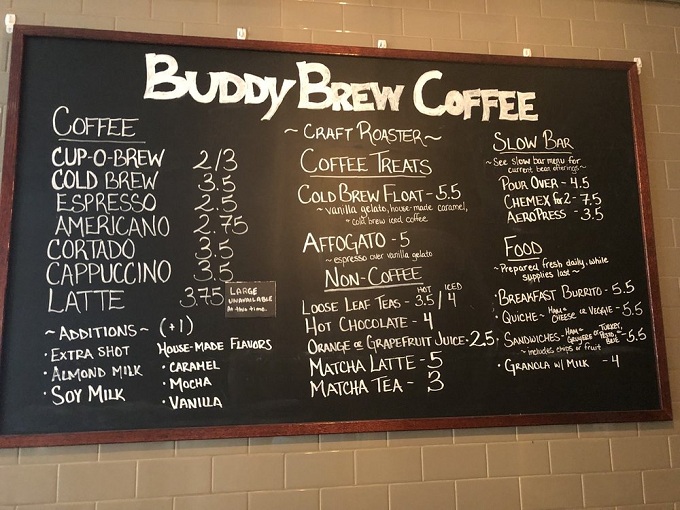 BUDDY BREW COFFEE
~ CRAFT ROASTER ~
COFFEE
CUP-O-BREW 2/3
COLD BREW 3.5
ESPRESSO 2.5
AMERICANO 2.75
CORTADO 3.5
CAPPUCCINO 3.5
LATTE 3.75
LARGE
UNAVAILABLE
At this time.
~ ADDITIONS ~ (+1)
• EXTRA SHOT
• ALMOND MILK
• SOY MILK
HOUSE-MADE FLAVORS
• CARAMEL
• MOCHA
• VANILLA
COFFEE TREATS
COLD BREW FLOAT - 5.5
~ vanilla gelato, house-made caramel,
+ cold brew iced coffee
AFFOGATO - 5
~ espresso over vanilla gelato
NON-COFFEE
HOT ICED
LOOSE LEAF TEAS - 3.5/4
HOT CHOCOLATE - 4
ORANGE or GRAPEFRUIT JUICE - 2.5
MATCHA LATTE - 5
MATCHA TEA - 3
SLOW BAR
~ See slow bar menu for
current bean offerings ~
POUR OVER - 4.5
CHEMEX for 2 - 7.5
AEROPRESS - 3.5
FOOD
~ Prepared fresh daily, while
supplies last ~
• BREAKFAST BURRITO - 5.5
• QUICHE - HAM + CHEESE or VEGGIE - 5.5
• SANDWICHES - HAM + GRUYERE or TURKEY, PESTO, BRIE - 5.5
~ includes chips or fruit
• GRANOLA W/ MILK - 4